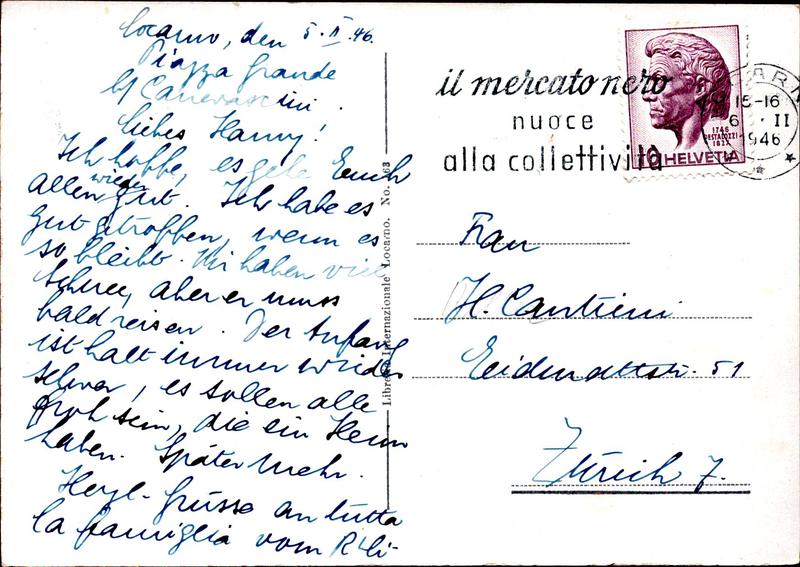 Locarno, den 5. II. 46.
Piazza Grande
b/ Canevascini.
Liebes Hanny!
Ich hoffe, es gehe Euch
allen wieder gut. Ich habe es
gut getroffen, wenn es
so bleibt. Wir haben viel
Schnee, aber er muss
bald reisen. Der Anfang
ist halt immer wieder
schwer, es sollen alle
froh sein, die ein Heim
haben. Später mehr.
Herzl. Grüsse an tutta
la famiglia vom
Libreria Internazionale Locarno. No.
il mercato nero
nuoce
alla collettività
15-16
6. II
1946
1746
PESTALOZZI
1827
10 HELVETIA
Frau
H. Cantieni
Zürich 7.